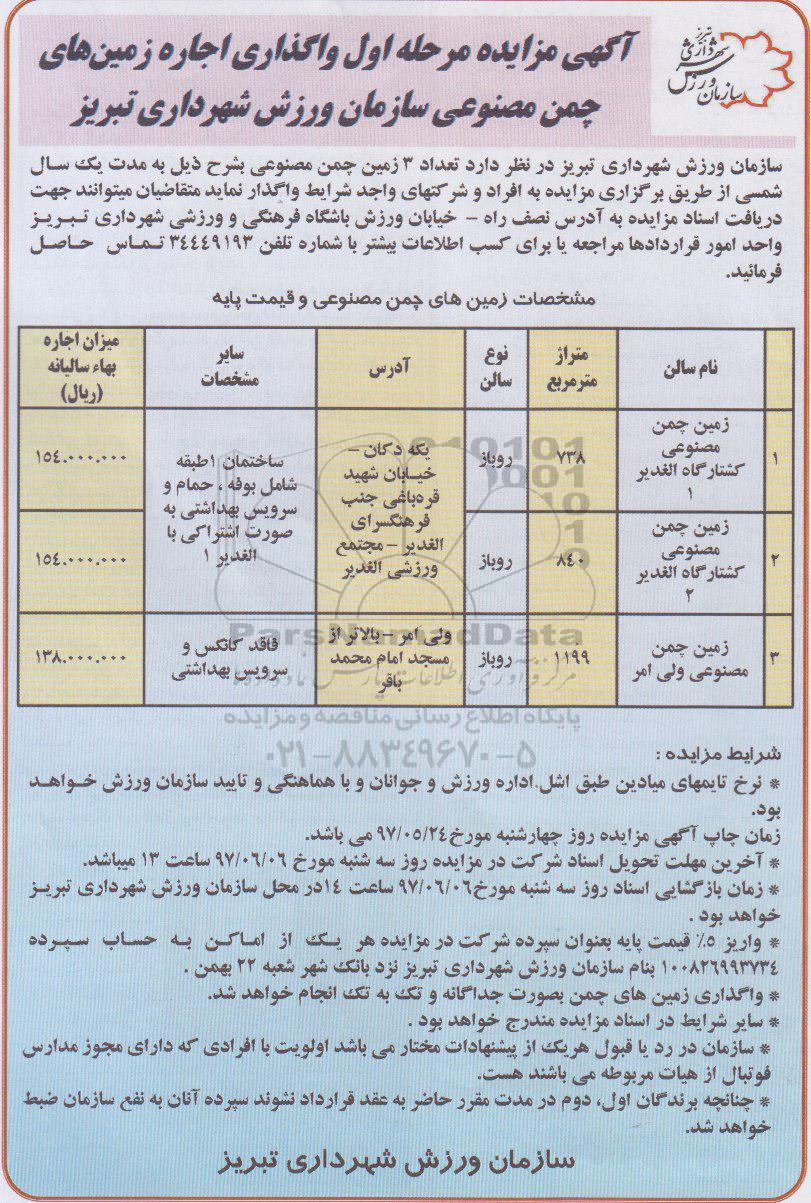 تبریز
شهرداری
سازمان ورزش
آگهی مزایده مرحله اول واگذاری اجاره زمین‌های
چمن مصنوعی سازمان ورزش شهرداری تبریز
سازمان ورزش شهرداری تبریز در نظر دارد تعداد ۳ زمین چمن مصنوعی بشرح ذیل به مدت یک سال
شمسی از طریق برگزاری مزایده به افراد و شرکتهای واجد شرایط واگذار نماید متقاضیان میتوانند جهت
دریافت اسناد مزایده به آدرس نصف راه – خیابان ورزش باشگاه فرهنگی و ورزشی شهرداری تبریز
واحد امور قراردادها مراجعه یا برای کسب اطلاعات بیشتر با شماره تلفن ۳٤٤٤۹۱۹۳ تماس حاصل
فرمائید.
مشخصات زمین های چمن مصنوعی و قیمت پایه
نام سالن | متراژ مترمربع | نوع سالن | آدرس | سایر مشخصات | میزان اجاره بهاء سالیانه (ریال)
۱ | زمین چمن مصنوعی کشتارگاه الغدیر ۱ | ۷۳۸ | روباز | یکه دکان – خیابان شهید قره‌باغی جنب فرهنگسرای الغدیر – مجتمع ورزشی الغدیر | ساختمان ۱طبقه شامل بوفه ، حمام و سرویس بهداشتی به صورت اشتراکی با الغدیر ۱ | ۱٥٤.۰۰۰.۰۰۰
۲ | زمین چمن مصنوعی کشتارگاه الغدیر ۲ | ۸٤۰ | روباز | ۱٥٤.۰۰۰.۰۰۰
۳ | زمین چمن مصنوعی ولی امر | ۱۱۹۹ | روباز | ولی امر – بالاتر از مسجد امام محمد باقر | فاقد کانکس و سرویس بهداشتی | ۱۳۸.۰۰۰.۰۰۰
ParsNamadData
پایگاه اطلاع رسانی مناقصه و مزایده
۰۲۱-۸۸۳٤۹٦۷۰-٥
شرایط مزایده :
* نرخ تایمهای میادین طبق اشل اداره ورزش و جوانان و با هماهنگی و تایید سازمان ورزش خواهد
بود.
زمان چاپ آگهی مزایده روز چهارشنبه مورخ۹۷/۰٥/۲٤ می باشد.
* آخرین مهلت تحویل اسناد شرکت در مزایده روز سه شنبه مورخ ۹۷/۰٦/۰٦ ساعت ۱۳ میباشد.
* زمان بازگشایی اسناد روز سه شنبه مورخ۹۷/۰٦/۰٦ ساعت ۱٤در محل سازمان ورزش شهرداری تبریز
خواهد بود .
* واریز ٥٪ قیمت پایه بعنوان سپرده شرکت در مزایده هر یک از اماکن به حساب سپرده
۱۰۰۸۲٦۹۹۳۷۳٤ بنام سازمان ورزش شهرداری تبریز نزد بانک شهر شعبه ۲۲ بهمن .
* واگذاری زمین های چمن بصورت جداگانه و تک به تک انجام خواهد شد.
* سایر شرایط در اسناد مزایده مندرج خواهد بود .
* سازمان در رد یا قبول هریک از پیشنهادات مختار می باشد اولویت با افرادی که دارای مجوز مدارس
فوتبال از هیات مربوطه می باشند هست.
* چنانچه برندگان اول، دوم در مدت مقرر حاضر به عقد قرارداد نشوند سپرده آنان به نفع سازمان ضبط
خواهد شد.
سازمان ورزش شهرداری تبریز